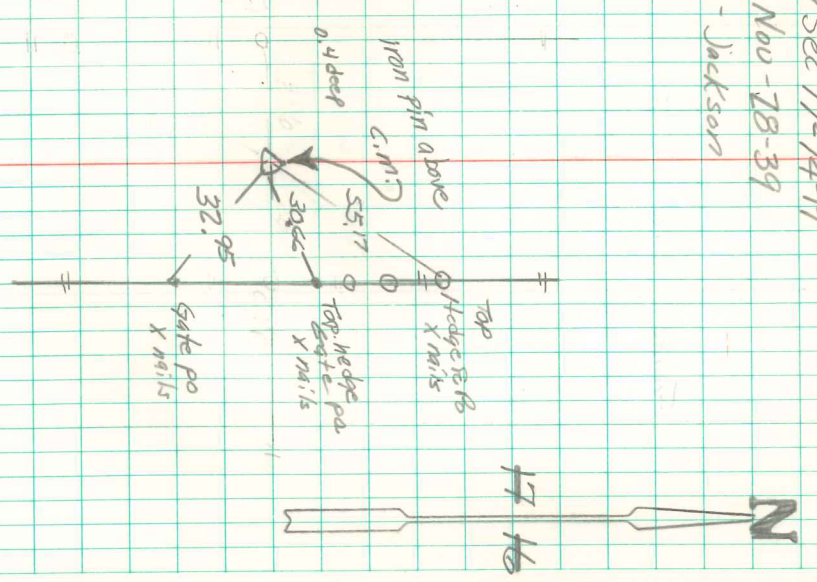 Nov-28-39
- Jackson
Iron pin above
C.M.?
0.4 deep
55.17
30.66
32.95
Top
X nails
Top. hedge
Gate po
X nails
Gate po
X nails
17 16
N